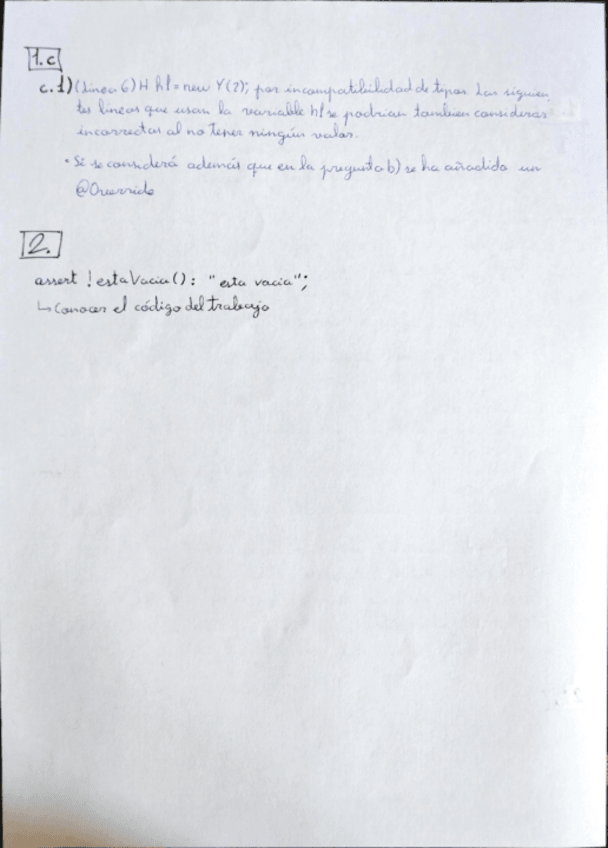 1.c
c.1) (Línea 6) H h1 = new Y(2); por incompatibilidad de tipos. Las siguien
tes líneas que usan la variable h1 se podrian tambien considerar
incorrectas al no tener ningún valor.
• Si se considerá además que en la pregunta b) se ha añadido un
@Override
2.
assert !estaVacia() : "esta vacia";
↳ Conocer el código del trabajo